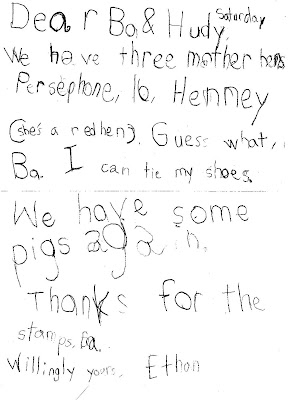 Dear Ba & Hudy, Saturday
We have three mother hens
Persephone, Io, Hemney
(she's a red hen). Guess what,
Ba. I can tie my shoes.
We have some
pigs again.
Thanks for the
stamps, Ba.
Willingly yours, Ethan